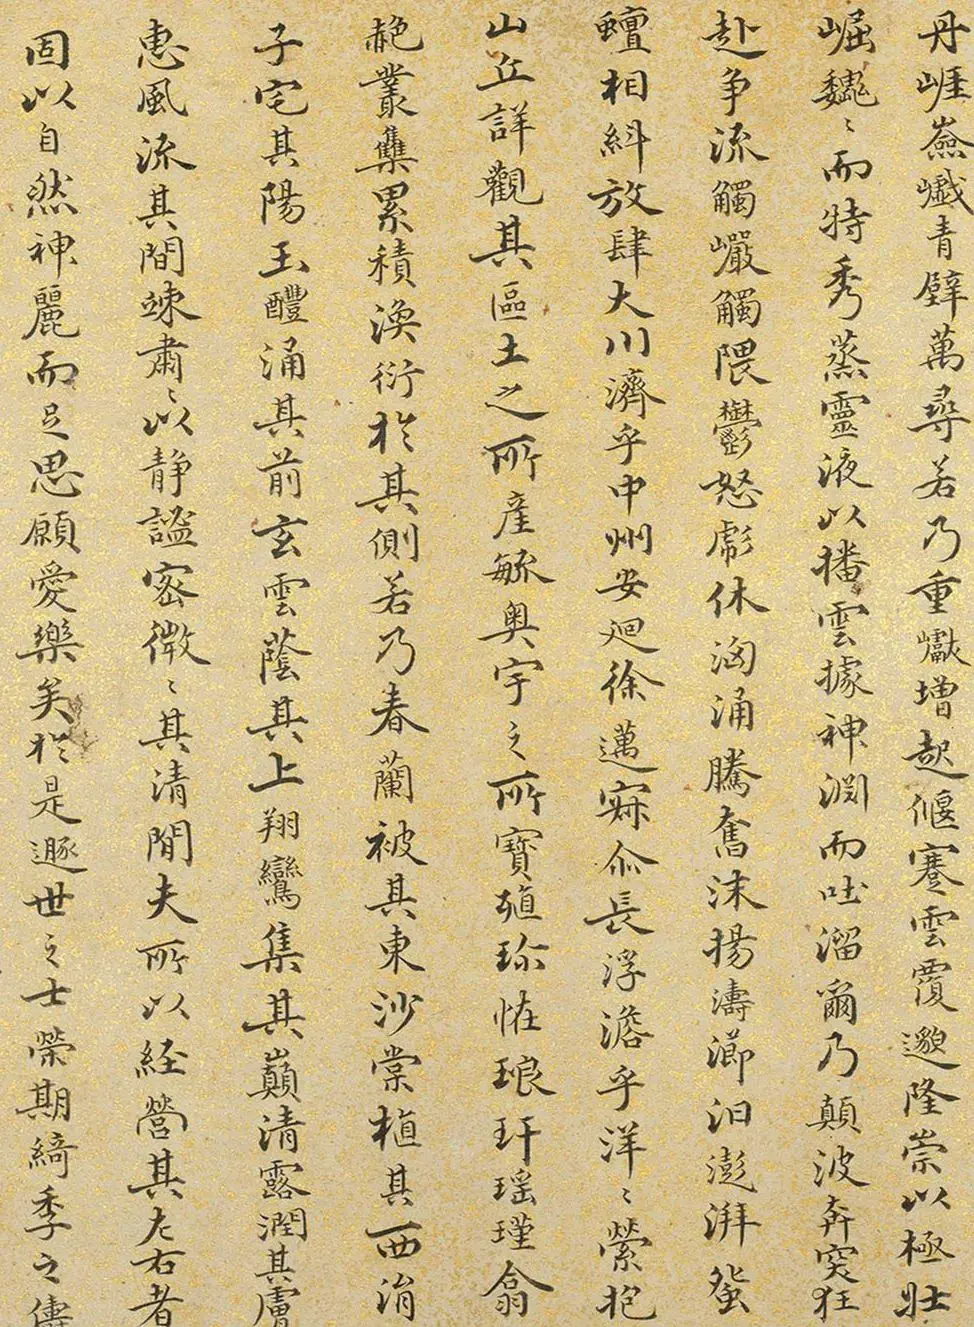 丹崕嶮巇青壁萬尋若乃重巘增起偃蹇雲覆邈隆崇以極壯
崛巍〻而特秀蒸靈液以播雲據神淵而吐溜爾乃顛波奔突狂
赴争流觸巖觸隈鬱怒彪休洶涌騰奮沫揚濤瀄汩澎湃蜿
蟺相糾放肆大川濟乎中州安迴徐邁寂尒長浮澹乎洋〻縈抱
山丘詳觀其區土之所産毓奥宇之所寶殖珎恠琅玕瑶瑾翕
赩叢集累積渙衍於其側若乃春蘭被其東沙棠植其西涓
子宅其陽玉醴涌其前玄雲蔭其上翔鸞集其巔清露潤其膚
惠風流其間竦肅〻以静謐密微〻其清閒夫所以経營其左右者
固以自然神麗而足思願愛樂矣於是遯世之士榮期綺季之儔